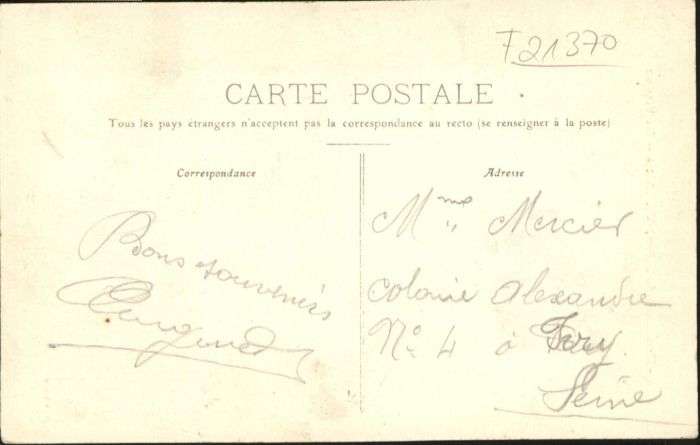 F21370
CARTE POSTALE
Tous les pays étrangers n'acceptent pas la correspondance au recto (se renseigner à la poste)
Correspondance
Bons souvenirs
Adresse
Mme Mercier
colonie Alexandre
No 4 à Ivry
Seine